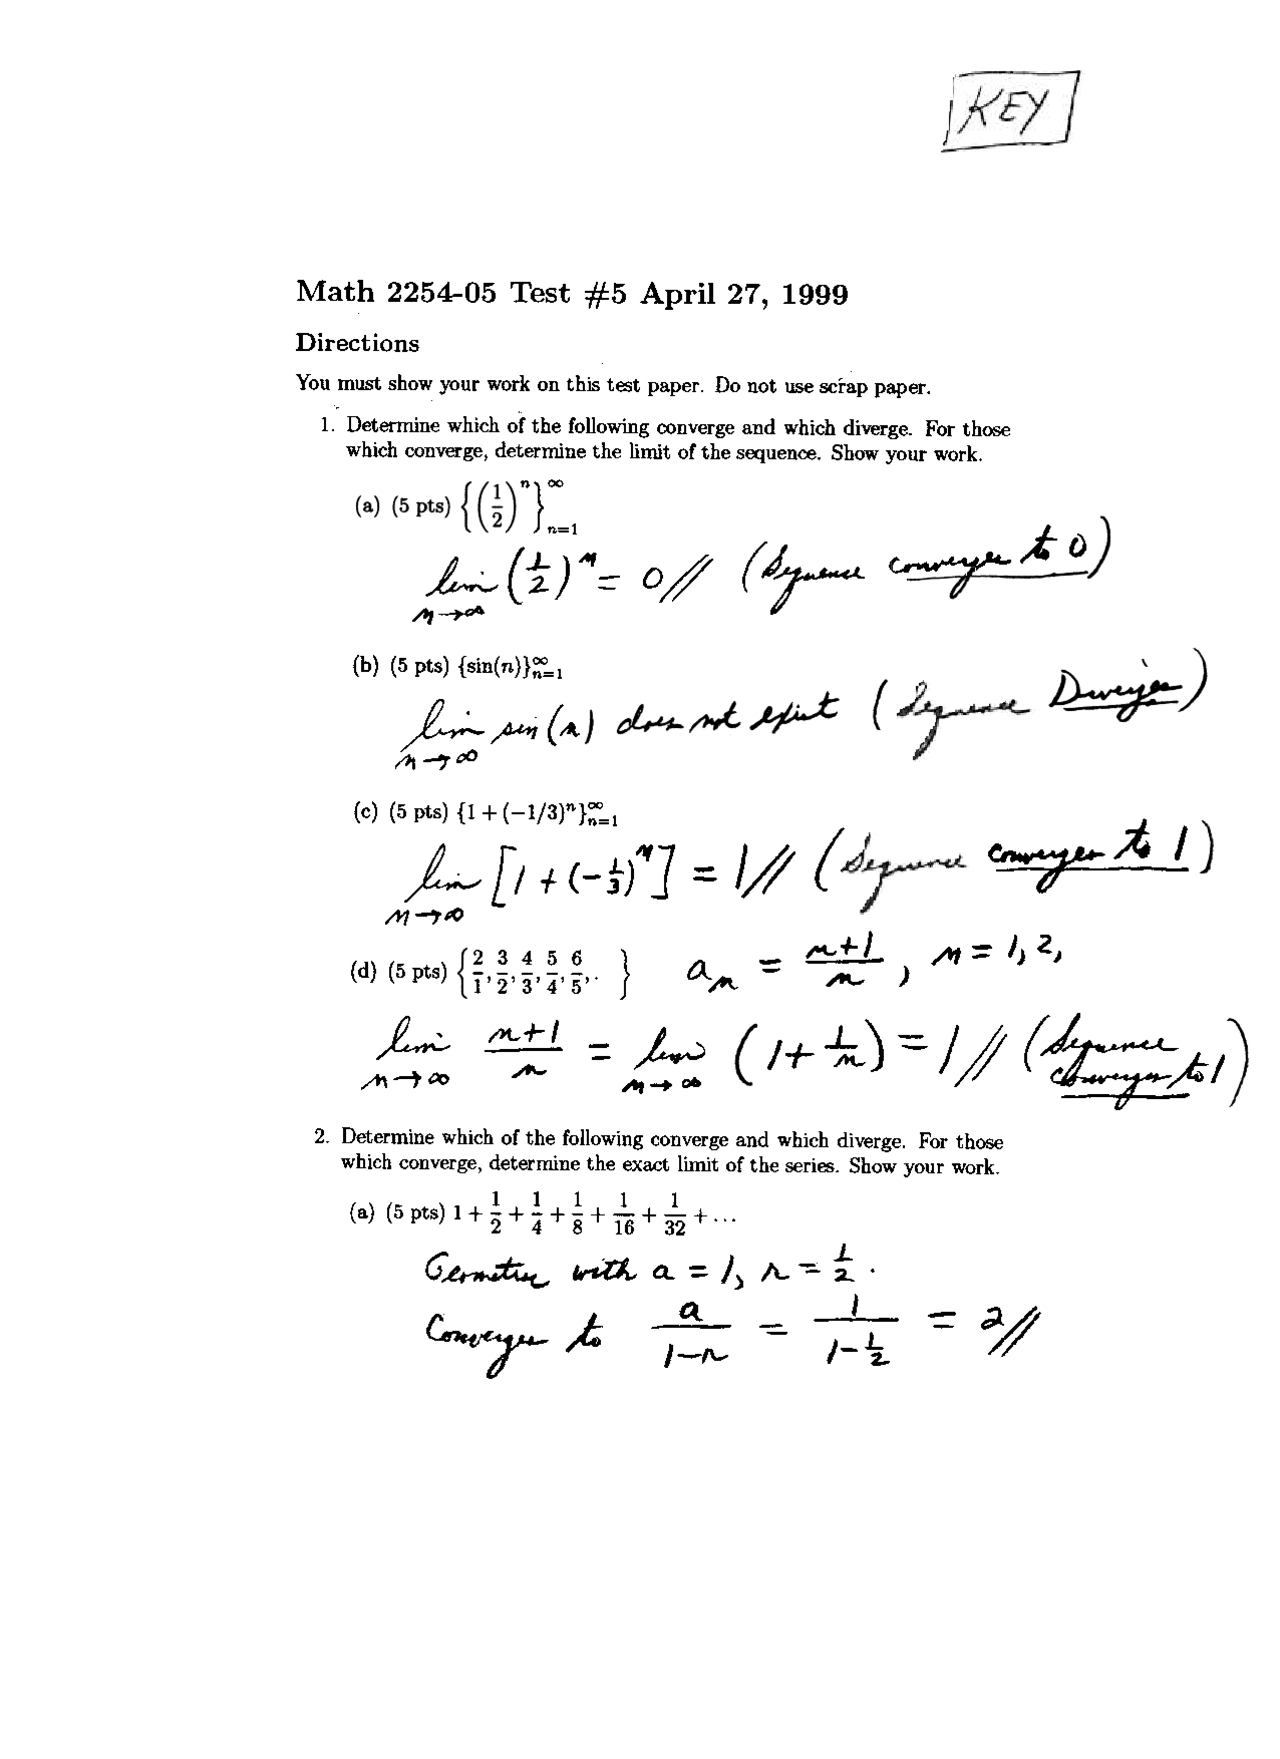 KEY
Math 2254-05 Test #5 April 27, 1999
Directions
You must show your work on this test paper. Do not use scrap paper.
1. Determine which of the following converge and which diverge. For those
which converge, determine the limit of the sequence. Show your work.
(a) (5 pts) {(1/2)^n}_{n=1}^∞
lim_{n→∞} (1/2)^n = 0 // (Sequence converges to 0)
(b) (5 pts) {sin(n)}_{n=1}^∞
lim_{n→∞} sin(n) does not exist (Sequence Diverges)
(c) (5 pts) {1 + (−1/3)^n}_{n=1}^∞
lim_{n→∞} [1 + (−1/3)^n] = 1 // (Sequence converges to 1)
(d) (5 pts) {2/1, 3/2, 4/3, 5/4, 6/5, . } a_n = n+1/n , n = 1, 2,
lim_{n→∞} n+1/n = lim_{n→∞} (1 + 1/n) = 1 // (Sequence
converges to 1)
2. Determine which of the following converge and which diverge. For those
which converge, determine the exact limit of the series. Show your work.
(a) (5 pts) 1 + 1/2 + 1/4 + 1/8 + 1/16 + 1/32 + ...
Geometric with a = 1, r = 1/2 .
Converges to a/1−r = 1/1−1/2 = 2 //